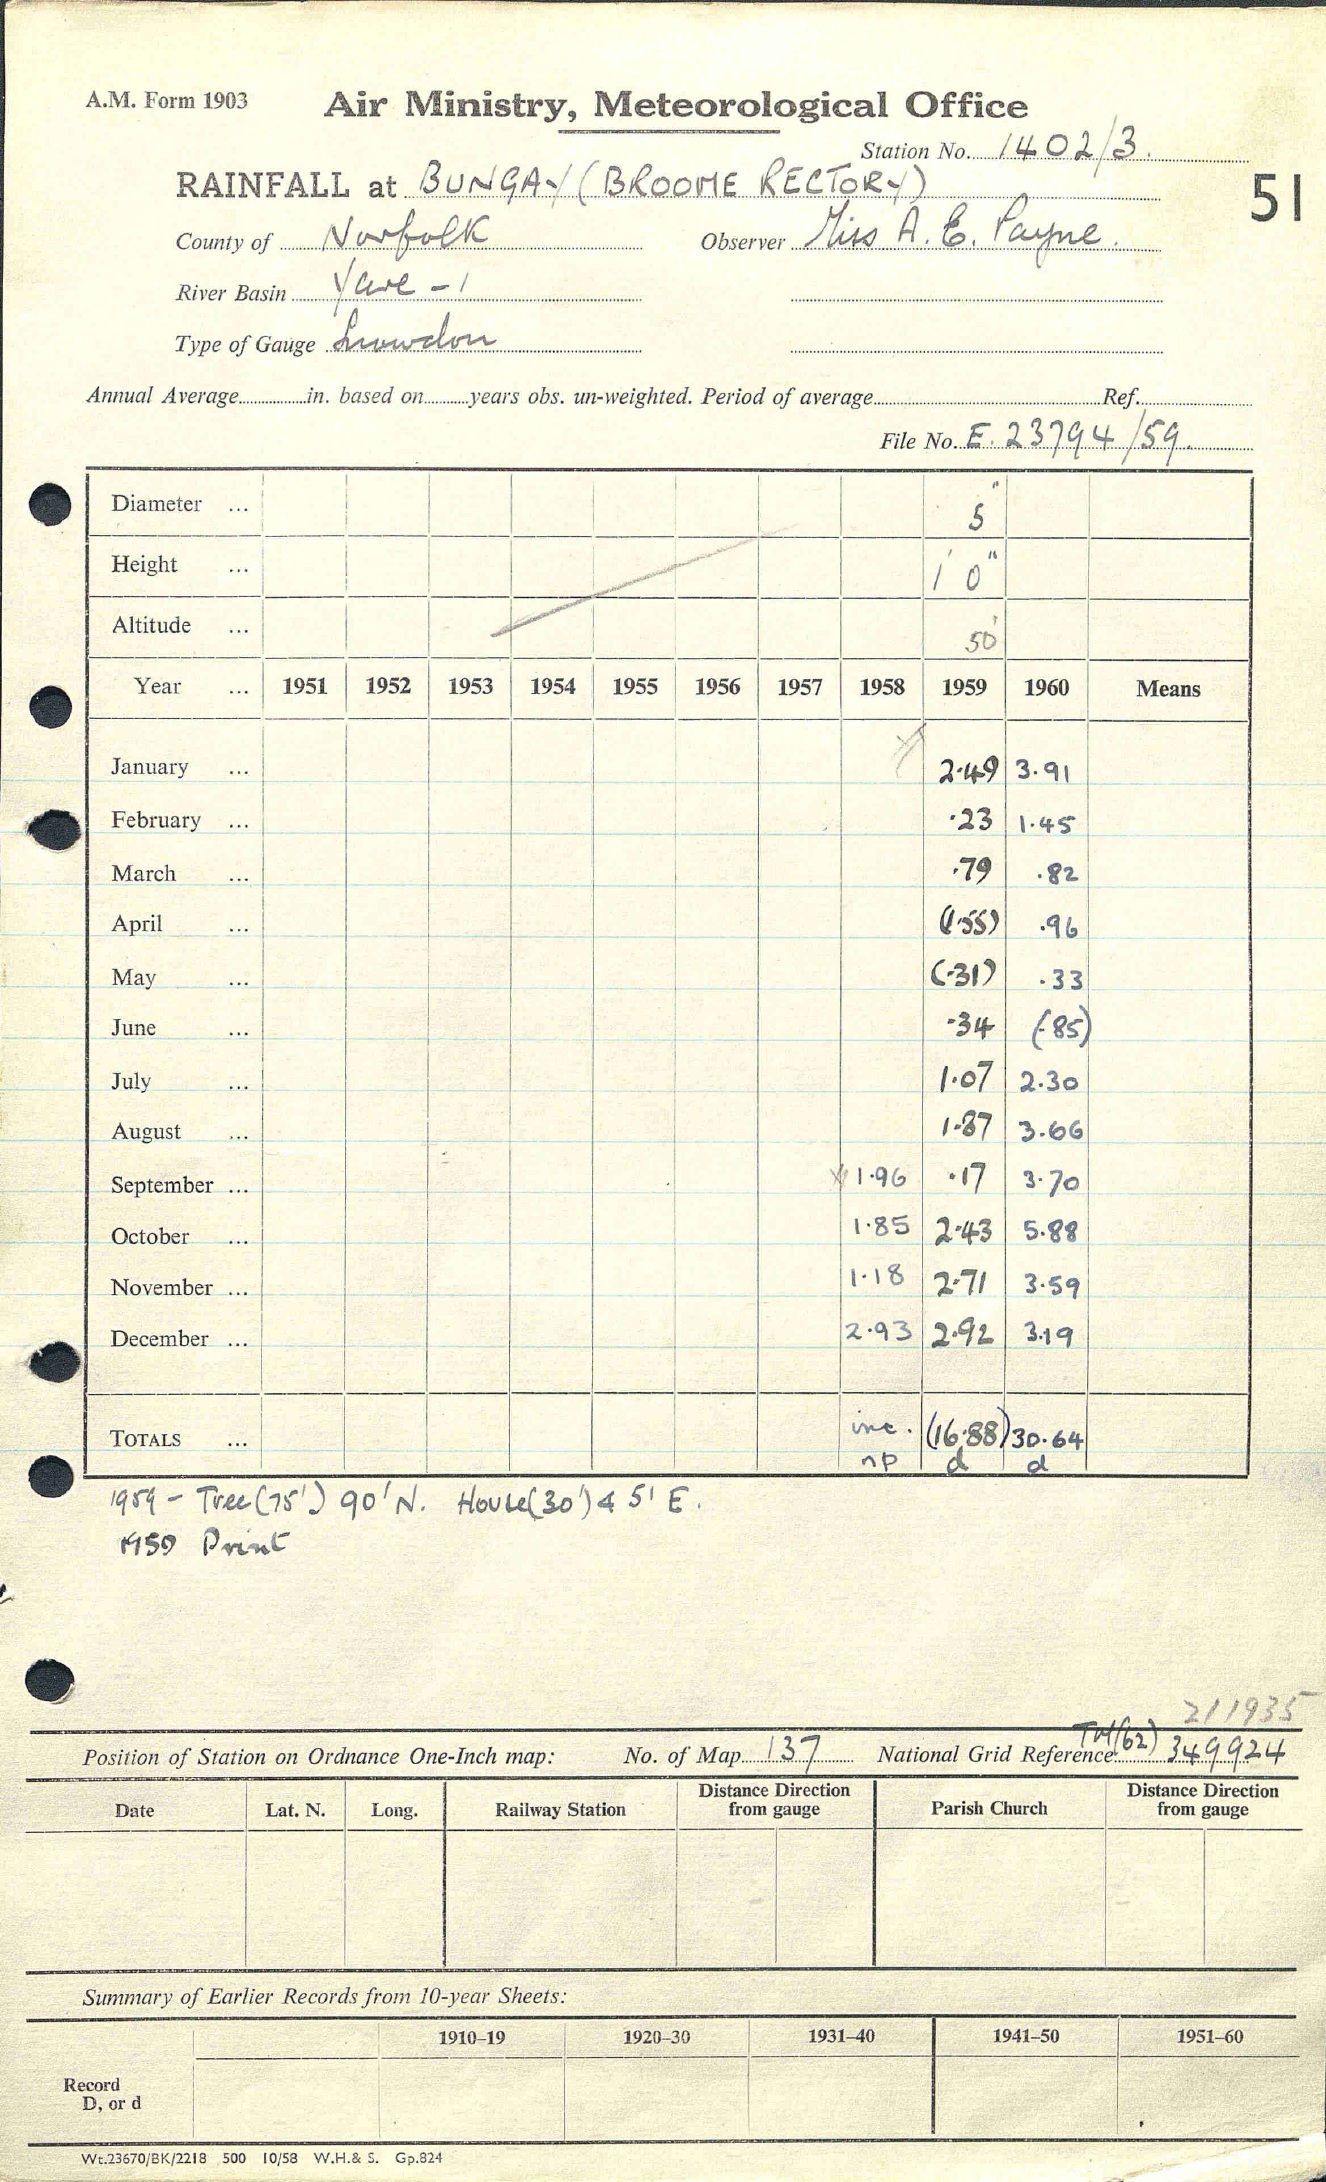 A.M. Form 1903
Air Ministry, Meteorological Office
Station No. 1402/3.
RAINFALL at BUNGAY (BROOME RECTORY)
51
County of Norfolk Observer Miss A. E. Payne.
River Basin Yare - 1
Type of Gauge Snowdon
Annual Average in. based on years obs. un-weighted. Period of average Ref.
File No. E. 23794/59.
Diameter ... 5"
Height ... 1' 0"
Altitude ... 50'
Year ... 1951 1952 1953 1954 1955 1956 1957 1958 1959 1960 Means
January ... 2.49 3.91
February ... .23 1.45
March ... .79 .82
April ... (1.55) .96
May ... (.31) .33
June ... .34 (.85)
July ... 1.07 2.30
August ... 1.87 3.66
September ... 1.96 .17 3.70
October ... 1.85 2.43 5.88
November ... 1.18 2.71 3.59
December ... 2.93 2.92 3.19
TOTALS ... inc. (16.88) 30.64
np d d
1959 - Tree (75') 90' N. House (30') 45' E.
1959 Print
211935
Position of Station on Ordnance One-Inch map: No. of Map 137 National Grid Reference TM(62) 349924
Date Lat. N. Long. Railway Station Distance Direction from gauge Parish Church Distance Direction from gauge
Summary of Earlier Records from 10-year Sheets:
1910–19 1920–30 1931–40 1941–50 1951–60
Record
D, or d
Wt.23670/BK/2218 500 10/58 W.H.& S. Gp.824